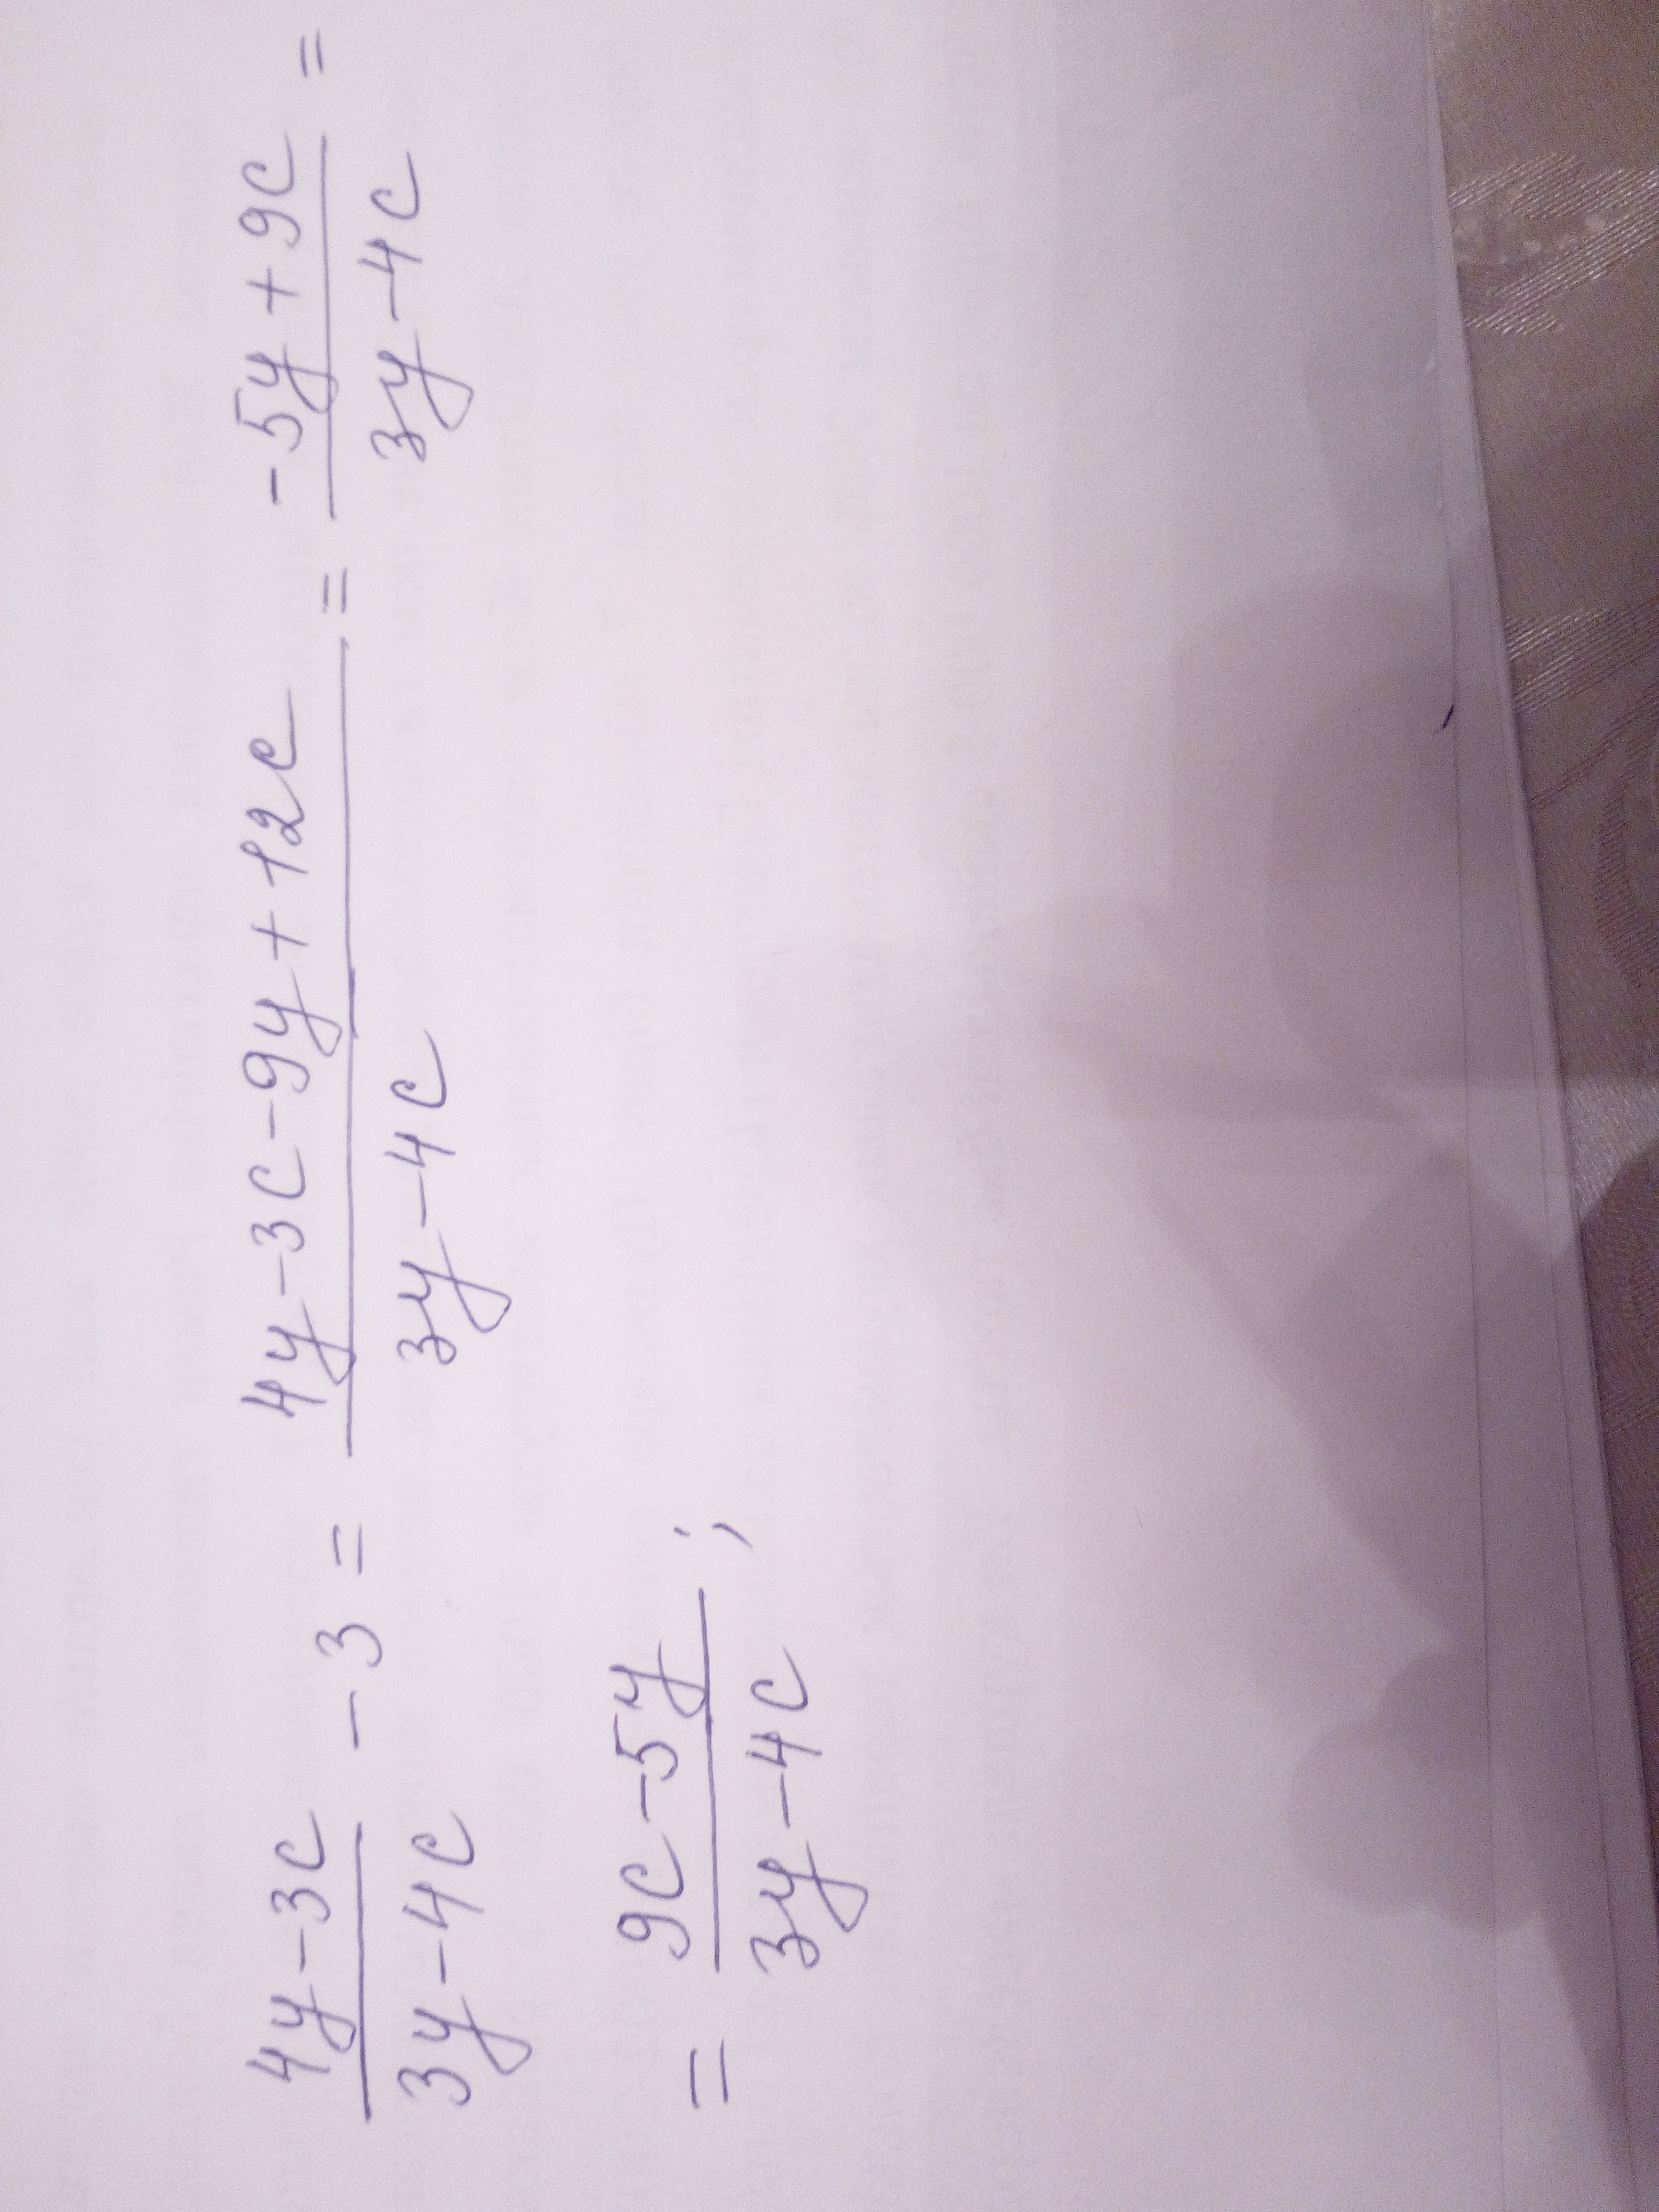 (4y-3c)/(3y-4c) - 3 = (4y-3c-9y+12c)/(3y-4c) = (-5y+9c)/(3y-4c) =
= (9c-5y)/(3y-4c) ;